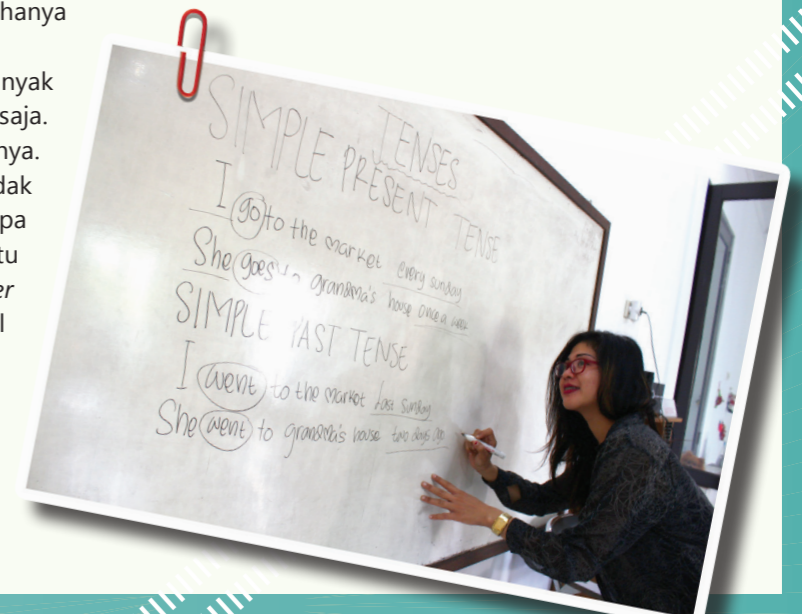 hanya
nyak
saja.
nya.
dak
pa
tu
er
l
TENSES
SIMPLE PRESENT TENSE
I go to the market every sunday
She goes to grandma's house once a week
SIMPLE PAST TENSE
I went to the market last sunday
She went to grandma's house two days ago